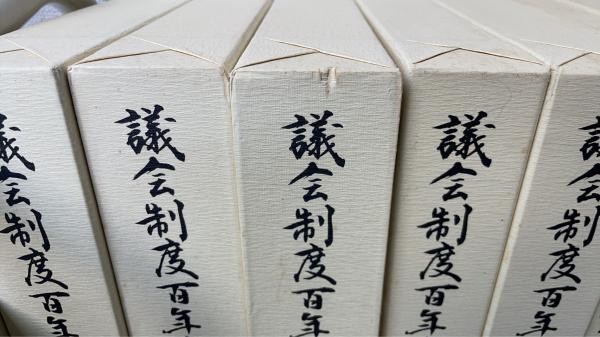 議会制度百年
議会制度百年
議会制度百年
議会制度百年
議会制度百年